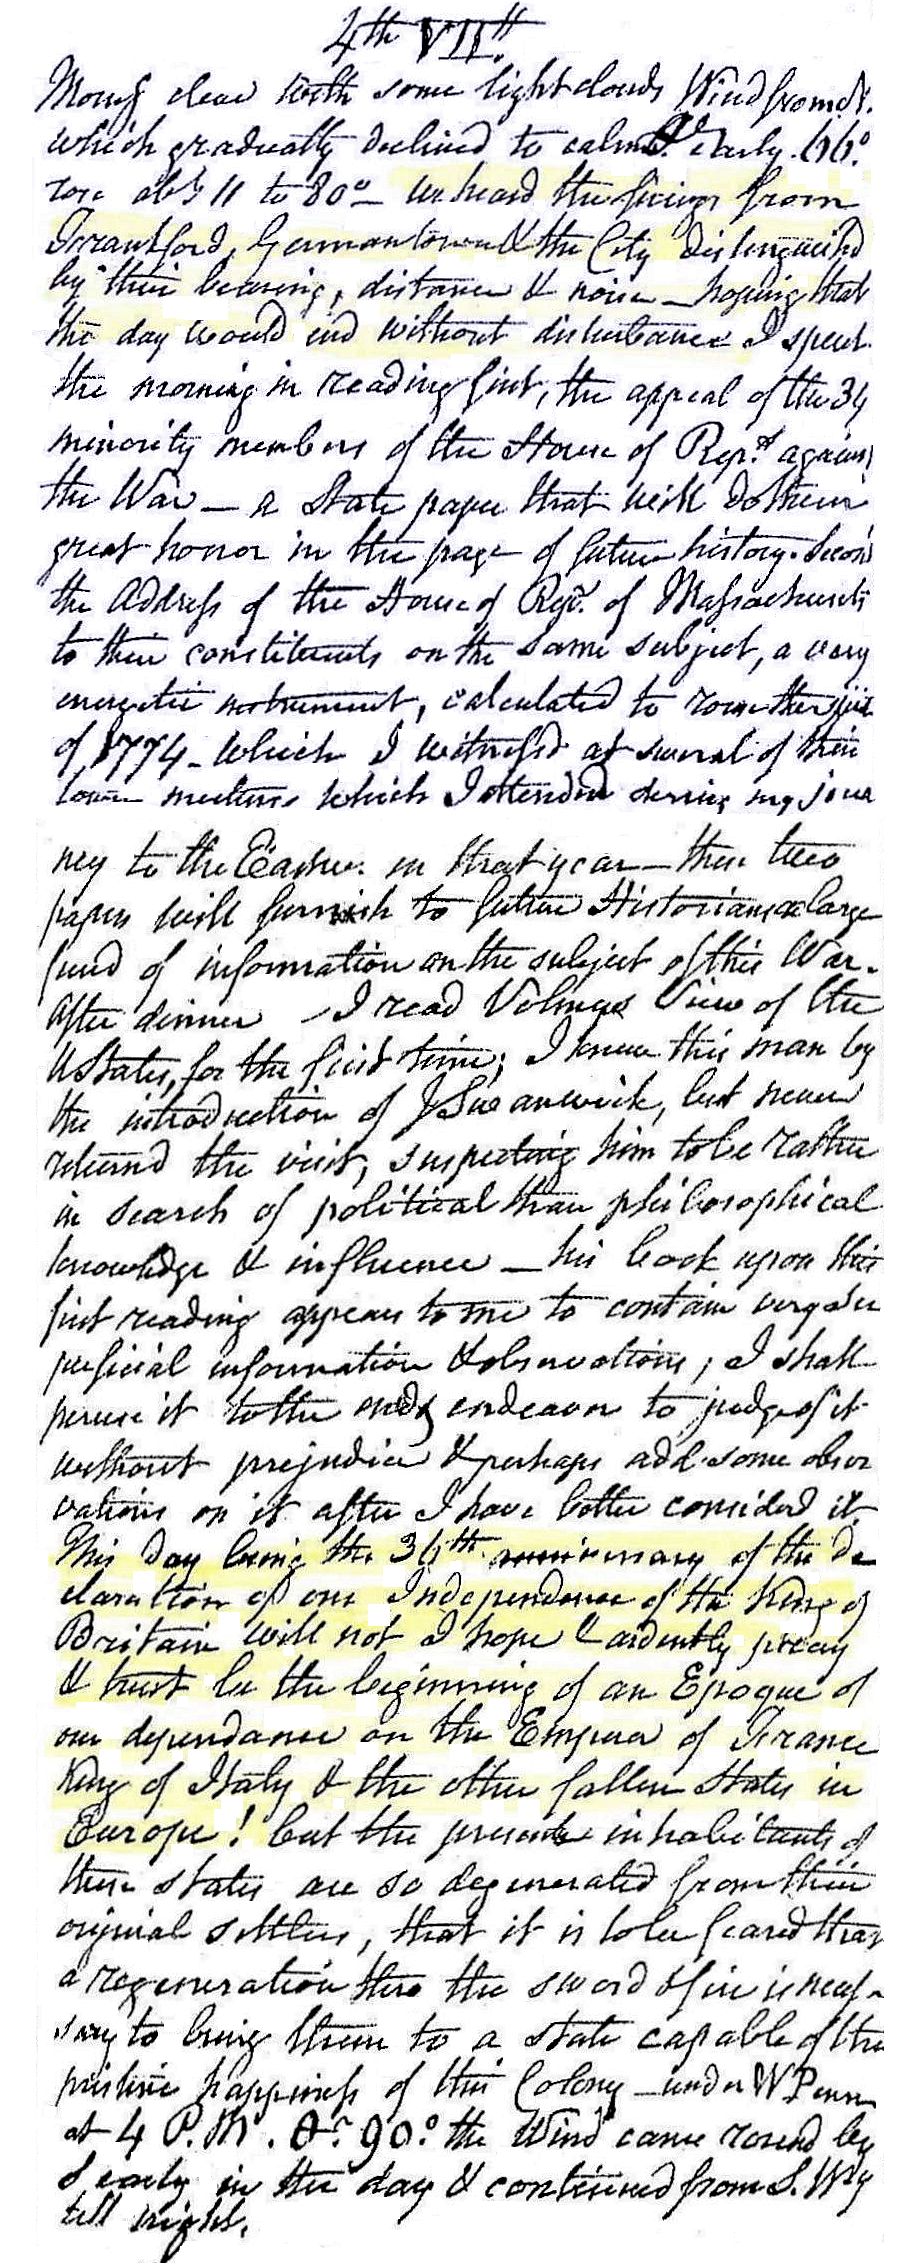 4th VIIth.
Morng clear with some light clouds Wind from N.
which gradually declined to calm early 66°
rose abt 11 to 80° – we heard the firings from
Frankford, Germantown & the City distinguishd
by their bearing, distance & noise – hoping that
the day would end without disturbance I spent
the morning in reading first, the appeal of the 34
minority members of the House of Reps. against
the War – a State paper that will do them
great honor in the page of future history. Second
the Address of the House of Reps. of Massachusets
to their constituents on the same subject, a very
energetic instrument, calculated to rouse the spirit
of 1774 – which I witnessd at several of their
town meetings which I attended during my jour
ney to the Eastw. in that year – these two
papers will furnish to future Historians a large
fund of information on the subject of this War.
After dinner – I read Volneys View of the
U States, for the first time; I knew this man by
the introduction of J Swanwick, but never
returnd the visit, suspecting him to be rather
in search of political than philosophical
knowledge & influence – his book upon this
first reading appears to me to contain very su
perficial information & observations; I shall
peruse it to the end & endeavor to judge of it
without prejudice & perhaps add some obser
vations on it after I have better considerd it
This day being the 36th anniversary of the de
claration of our Independence of the King of
Britain will not I hope & ardently pray
& trust be the beginning of an Epoque of
our dependance on the Emperor of France
King of Italy & the other fallen States in
Europe! but the present inhabitants of
these states are so degenerated from their
original settlers, that it is to be feared that
a regeneration thro the sword & fire is neces-
sary to bring them to a state capable of the
pristine happiness of this Colony – under W Penn
at 4 P.M. 90° the Wind came round by
S early in the day & continued from S. Wly
till night.